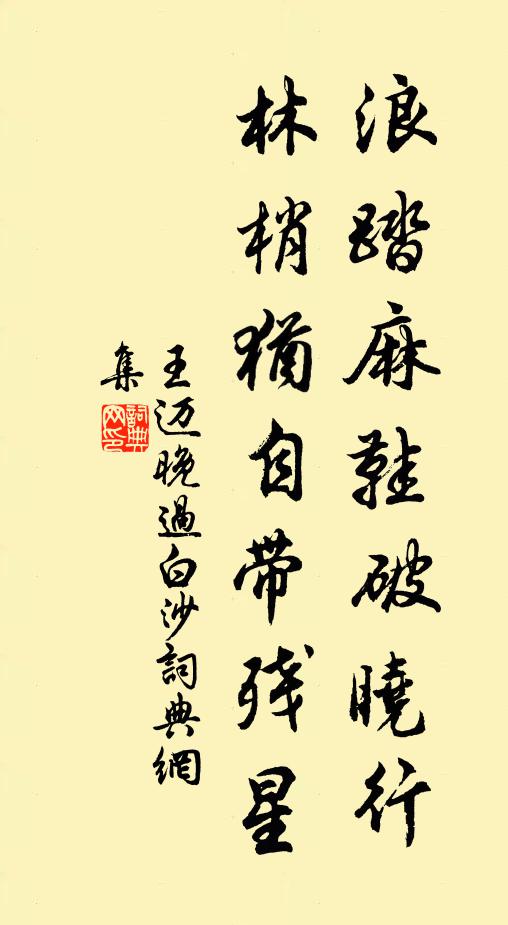 浪踏麻鞋破曉行
林梢猶自带残星
王迈晚過白沙詞典網
集
詞典
网印